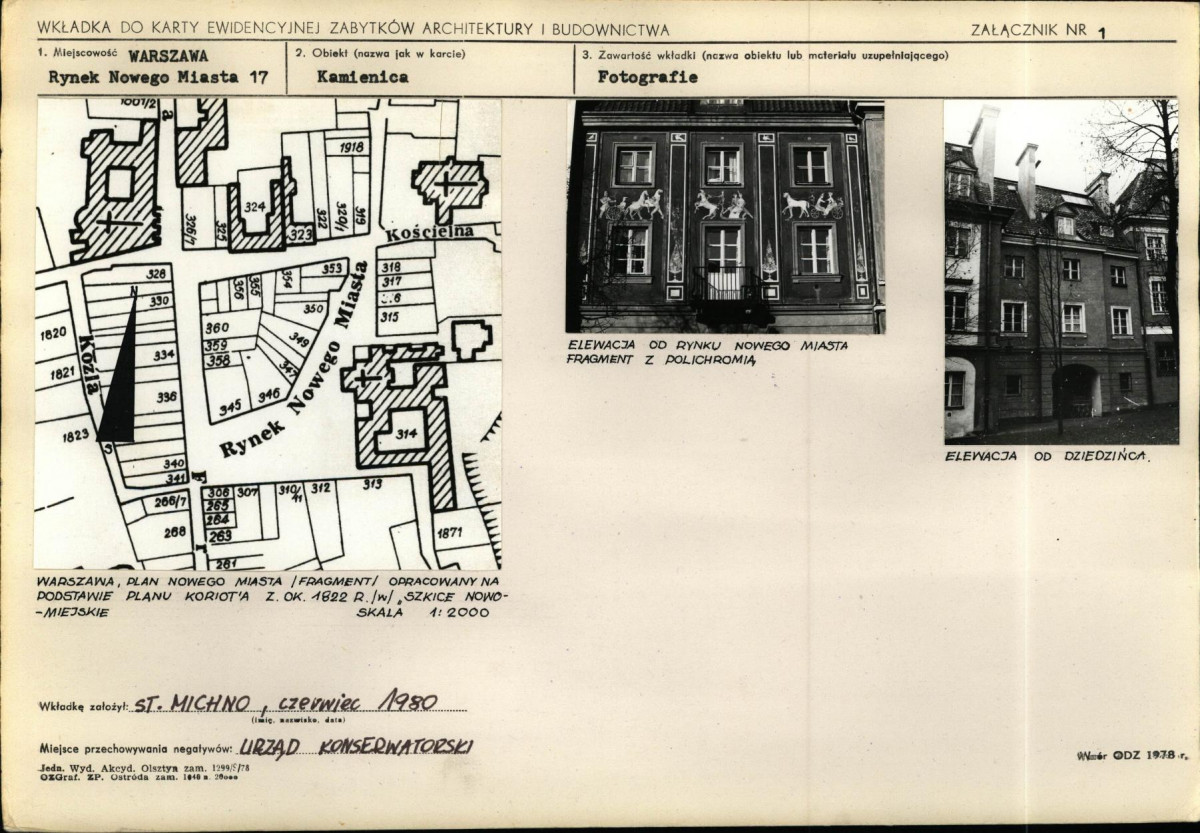 WKŁADKA DO KARTY EWIDENCYJNEJ ZABYTKÓW ARCHITEKTURY I BUDOWNICTWA
ZAŁĄCZNIK NR 1
1. Miejscowość WARSZAWA
Rynek Nowego Miasta 17
2. Obiekt (nazwa jak w karcie)
Kamienica
3. Zawartość wkładki (nazwa obiektu lub materiału uzupełniającego)
Fotografie
1001/2
a
1918
324
326/1
325
323
322
320/1
319
Kościelna
328
330
334
336
340
341
353
354
355
356
350
360
359
358
349
347
346
345
318
317
315
1820
1821
1823
Kozla
Rynek Nowego Miasta
314
N
S
F
r
266/7
268
308
265
264
263
261
307
310/11
312
313
1871
WARSZAWA, PLAN NOWEGO MIASTA /FRAGMENT/ OPRACOWANY NA
PODSTAWIE PLANU KORIOT'A Z. OK. 1822 R. /W/ „SZKICE NOWO-
-MIEJSKIE SKALA 1:2000
ELEWACJA OD RYNKU NOWEGO MIASTA
FRAGMENT Z POLICHROMIĄ
ELEWACJA OD DZIEDZIŃCA.
Wkładkę założył: ST. MICHNO, czerwiec 1980
(imię, nazwisko, data)
Miejsce przechowywania negatywów: URZĄD KONSERWATORSKI
Jedn. Wyd. Akcyd. Olsztyn zam. 1299/S/78
OZGraf. ZP. Ostróda zam.
Wzór ODZ 1978 r.